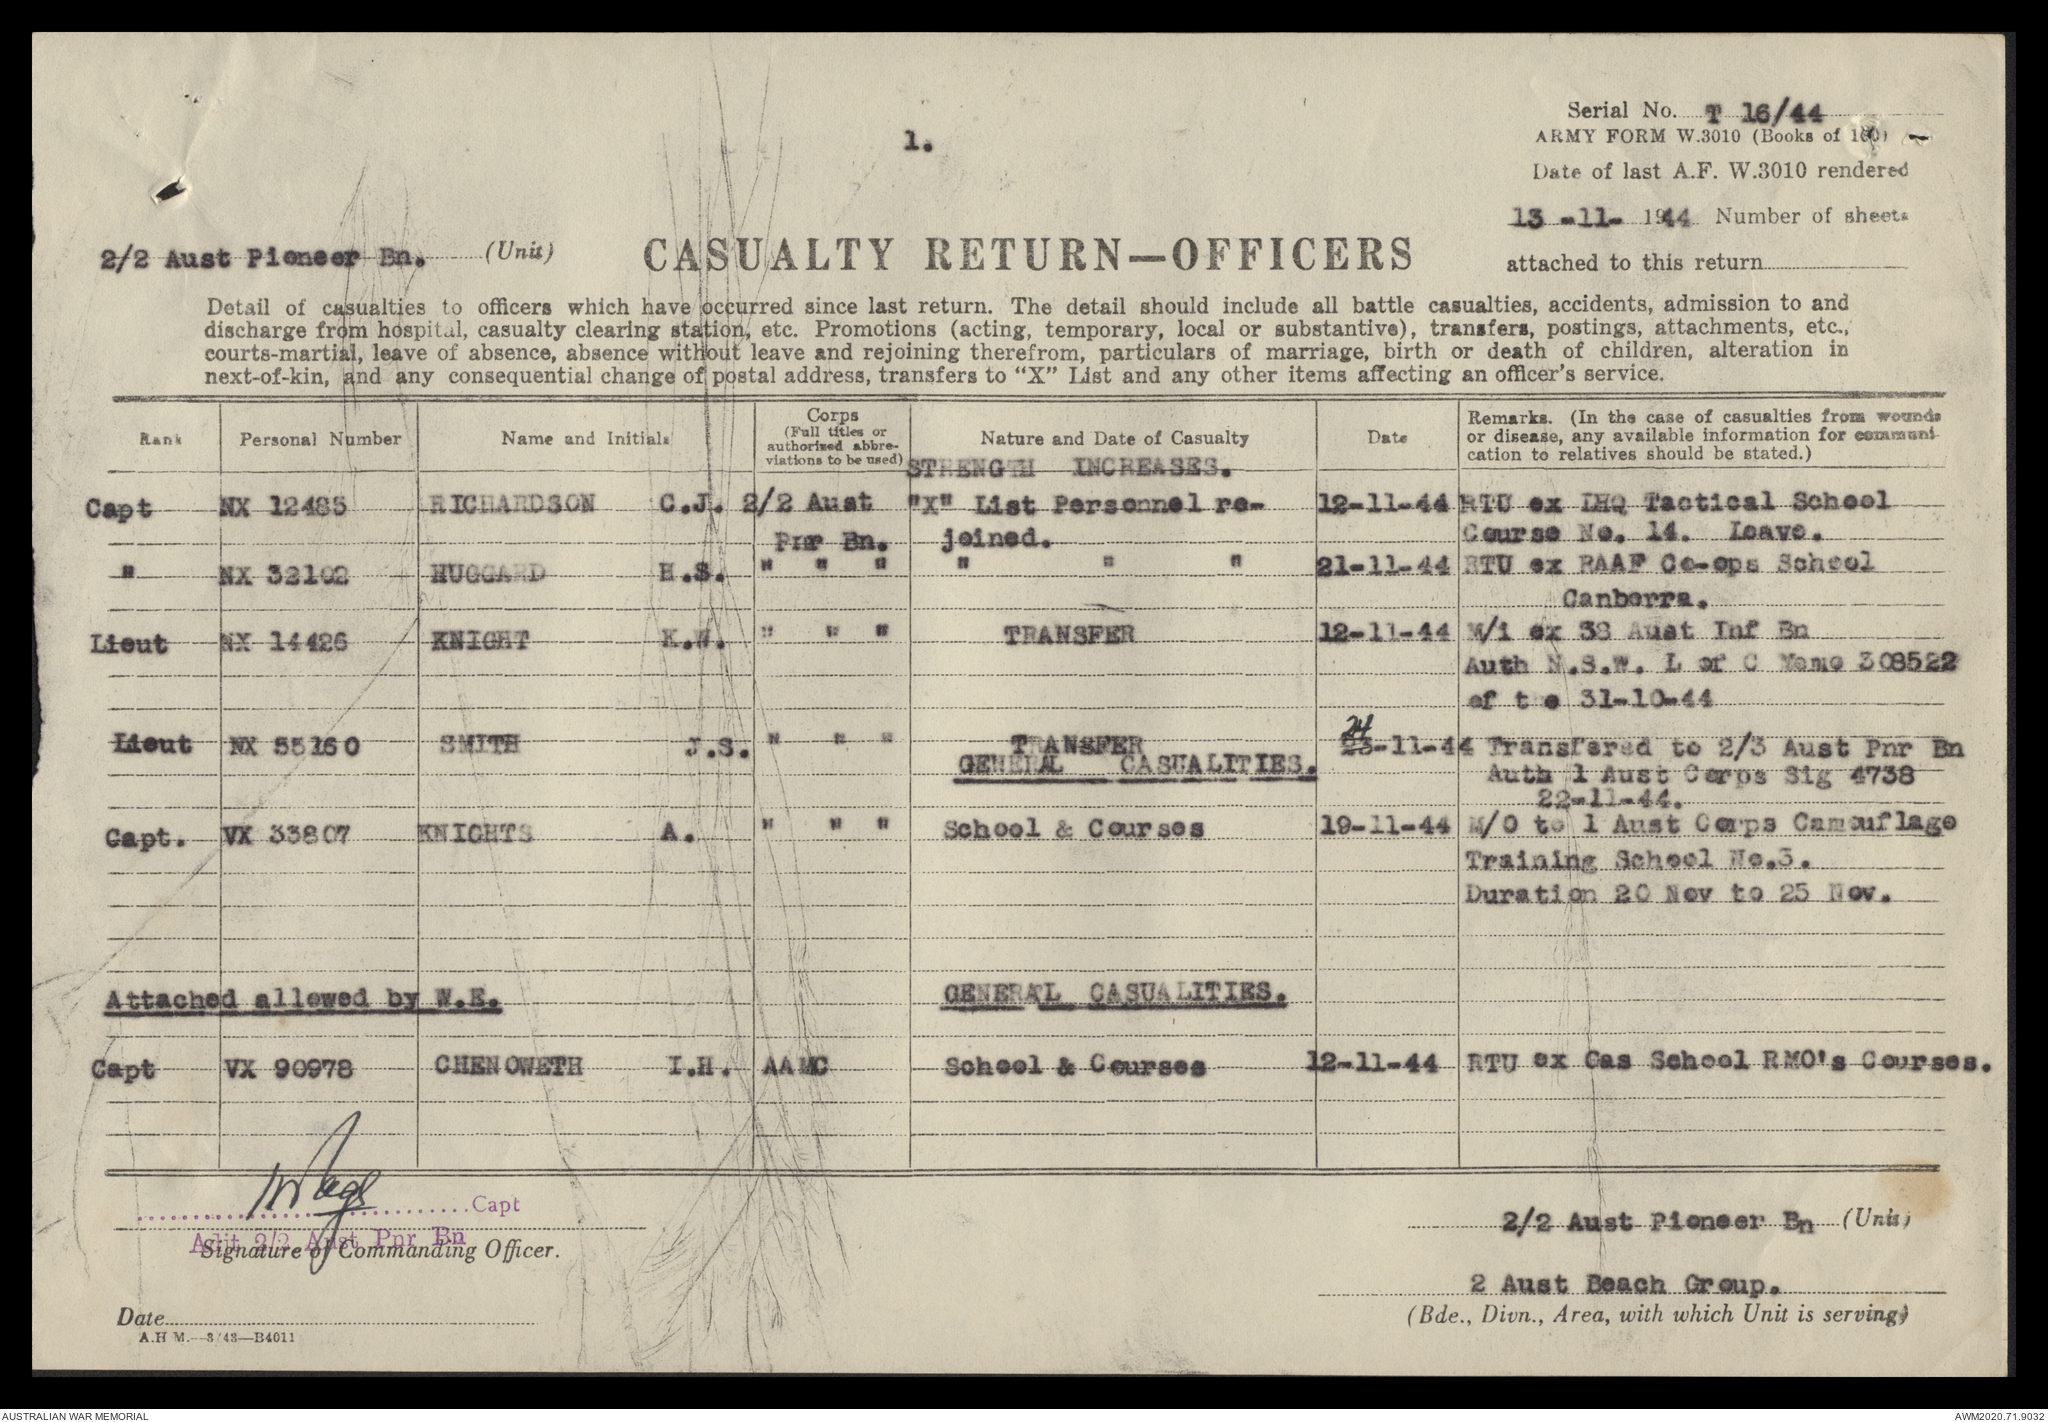 1.
Serial No. T 16/44
ARMY FORM W.3010 (Books of 100)
Date of last A.F. W.3010 rendered
13 -11- 1944 Number of sheets
attached to this return
2/2 Aust Pioneer Bn. (Unit)
CASUALTY RETURN—OFFICERS
Detail of casualties to officers which have occurred since last return. The detail should include all battle casualties, accidents, admission to and
discharge from hospital, casualty clearing station, etc. Promotions (acting, temporary, local or substantive), transfers, postings, attachments, etc.,
courts-martial, leave of absence, absence without leave and rejoining therefrom, particulars of marriage, birth or death of children, alteration in
next-of-kin, and any consequential change of postal address, transfers to "X" List and any other items affecting an officer's service.
Rank Personal Number Name and Initials Corps (Full titles or authorized abbreviations to be used) Nature and Date of Casualty Date Remarks. (In the case of casualties from wounds
or disease, any available information for communi-
cation to relatives should be stated.)
STRENGTH INCREASES.
Capt NX 12485 RICHARDSON C.J. 2/2 Aust "X" List Personnel re- 12-11-44 RTU ex LHQ Tactical School
Pnr Bn. joined. Course No. 14. Leave.
" NX 32102 HUGGARD H.S. " " " " " " 21-11-44 RTU ex RAAF Co-ops School
Canberra.
Lieut NX 14426 KNIGHT K.W. " " " TRANSFER 12-11-44 M/i ex 38 Aust Inf Bn
Auth N.S.W. L of C Memo 308522
of t e 31-10-44
Lieut NX 55160 SMITH J.S. " " " TRANSFER 24 23-11-44 Transfered to 2/3 Aust Pnr Bn
GENERAL CASUALITIES. Auth 1 Aust Corps Sig 4738
22-11-44.
Capt. VX 33807 KNIGHTS A. " " " School & Courses 19-11-44 M/O to 1 Aust Corps Camouflage
Training School No.3.
Duration 20 Nov to 25 Nov.
Attached allowed by W.E. GENERAL CASUALITIES.
Capt VX 90978 CHENOWETH I.H. AAMC School & Courses 12-11-44 RTU ex Gas School RMO's Courses.
Capt
Adjt 2/2 Aust Pnr Bn
Signature of Commanding Officer.
2/2 Aust Pioneer Bn (Unit)
2 Aust Beach Group.
(Bde., Divn., Area, with which Unit is serving)
Date
A.H M.—3/43—B4011
AUSTRALIAN WAR MEMORIAL AWM2020.71.9032